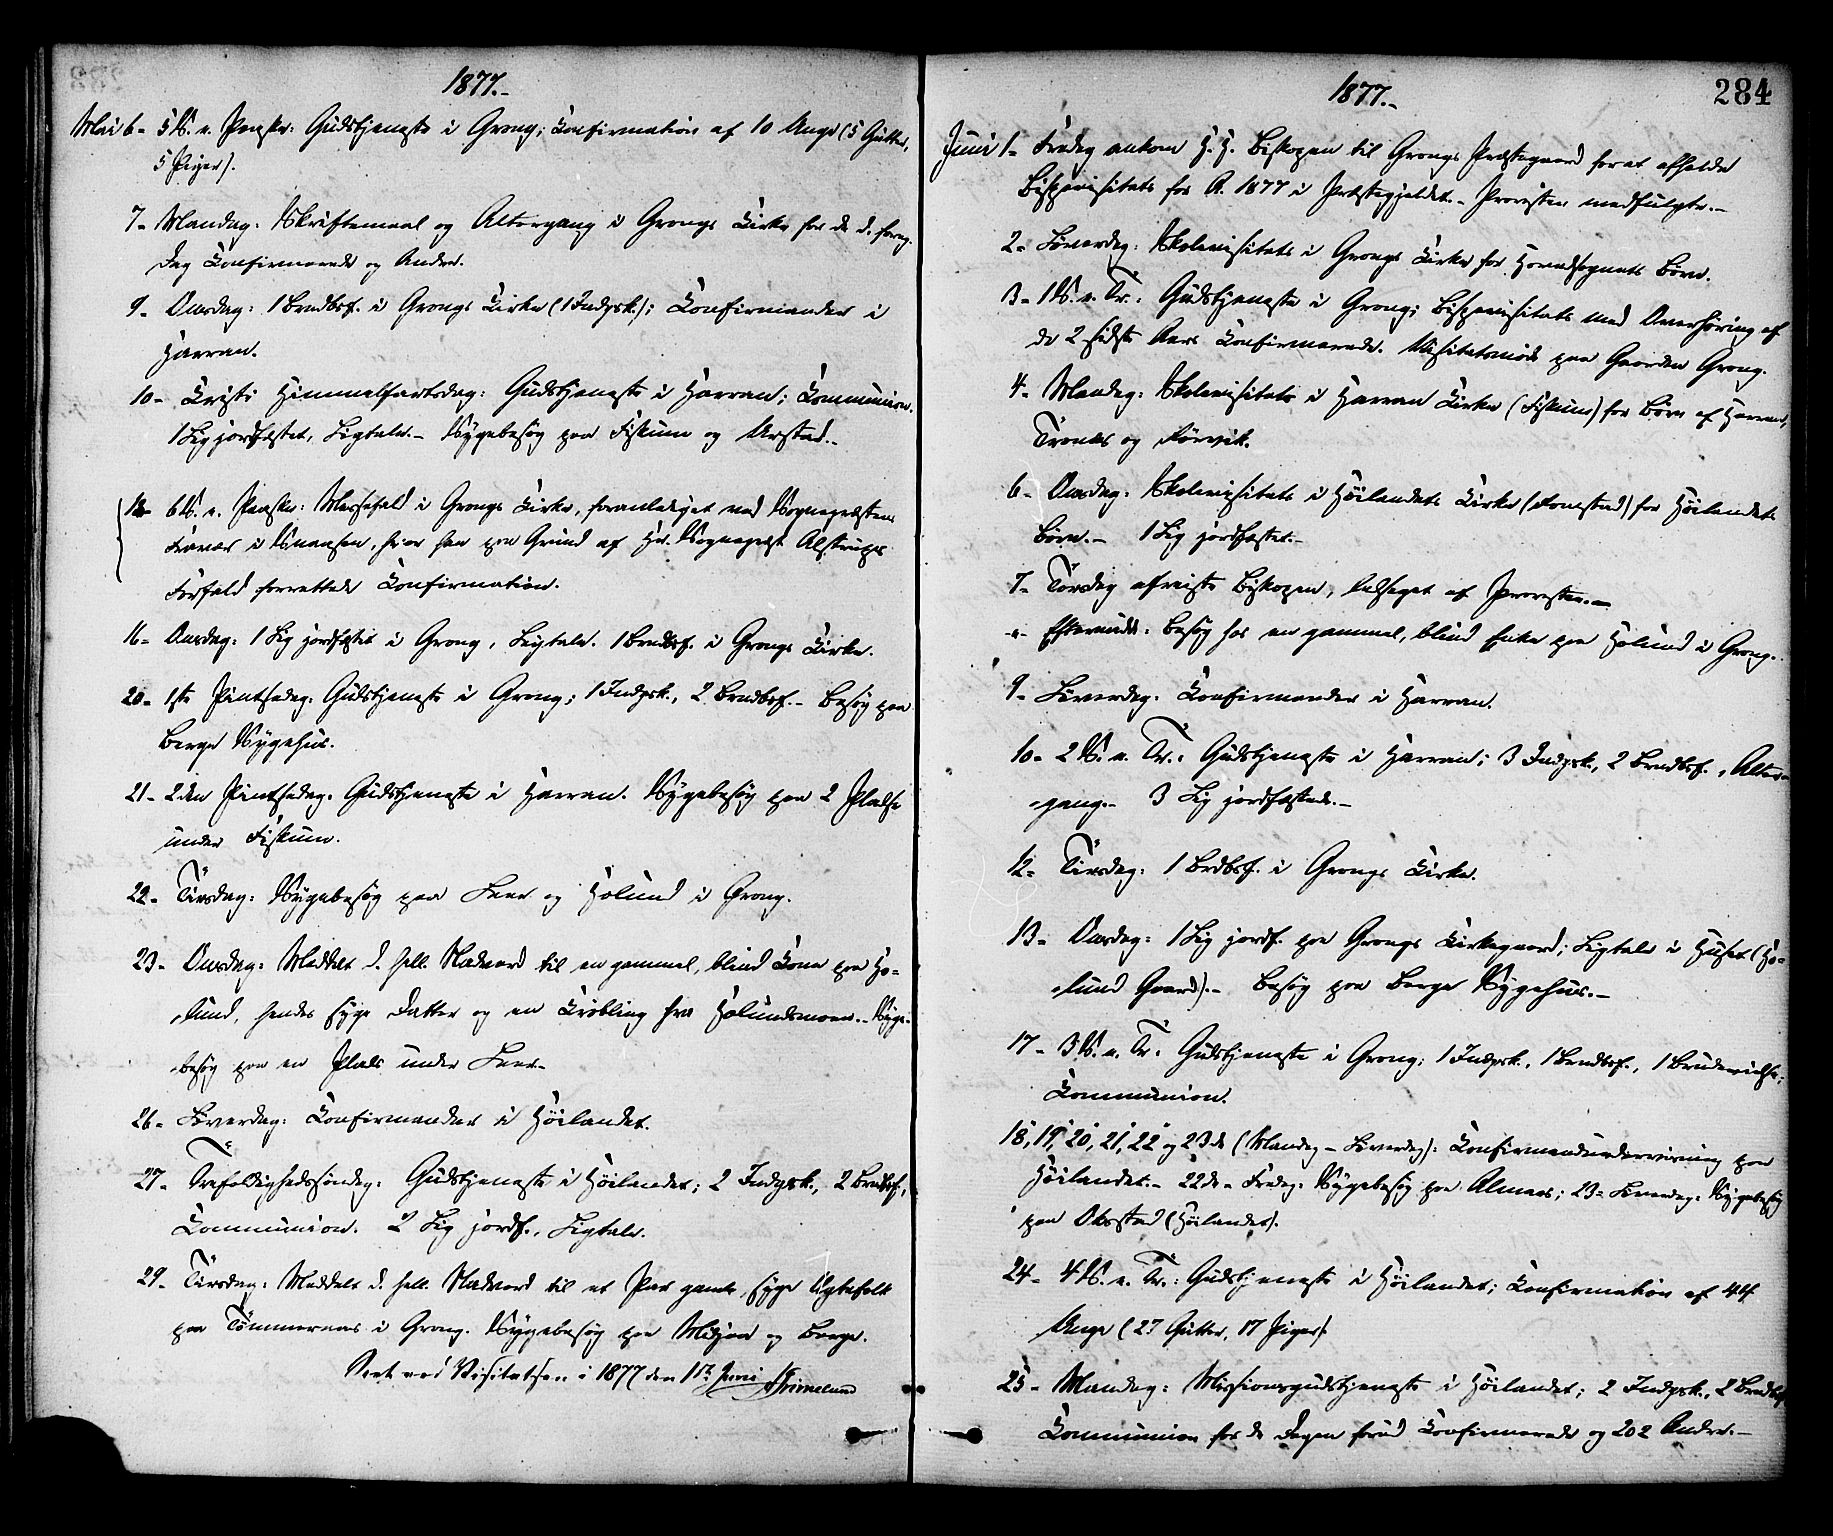 1877.-
Mai 6- 5 S. e. Paaske: Gudstjeneste i Grong; Confirmation af 10 Unge (5 Gutter,
5 Piger).
7- Mandag: Skriftemaal og Altergang i Grongs Kirke for de d. foreg.
Dag Confirmerede og Andre.
9- Onsdag: 1 Barndbsf. i Grongs Kirke (1 Indgsk.); Confirmander i
Harran.
10- Kristi Himmelfartsdag: Gudstjeneste i Harran; Communion.
1 Lig jordfæstet, Ligtale.- Sygebesøg paa Fiskum og Urstad.-
13- 6 S. e. Paaske: Messefald i Grongs Kirke, foranlediget ved Sognepræstens
i Snaasen, hvor han paa Grund af Hr. Sognepræst Alstrups
Forfald forrettede Confirmation.
16- Onsdag: 1 Lig jordfæstet i Grong, Ligtale. 1 Brndbsf. i Grongs Kirke.
20- 1ste Pintsedag: Gudstjeneste i Grong; 1 Indgsk., 2 Brndbsf.- Besøg paa
Berge Sygehus.
21- 2den Pintsedag: Gudstjeneste i Harran. Sygebesøg paa 2 Pladse
under Fiskum.
22- Tirsdag: Sygebesøg paa Leer og Holund i Grong.
23- Onsdag: Meddelt d. hell. Nadverd til en gammel, blind Kone paa Ho-
lund, hendes syge Datter og en Krøbling fra Holundsmoen.- Syge-
besøg paa en Plads under Leer.-
26- Løverdag: Confirmander i Høilandet.
27- Trefoldighedssøndag: Gudstjeneste i Høilandet; 2 Indgsk., 2 Brndbsf.,
Communion. 2 Lig jordf., Ligtale.
29- Tirsdag: Meddelt d. hell. Nadverd til et Par gamle, syge Ægtefolk
paa Tømmeraas i Grong. Sygebesøg paa Medjaa og Berge.
Seet ved Visitatsen i 1877 den 1ste Juni Grimelund
1877.-
284
Juni 1- Fredag ankom H. H. Biskopen til Grongs Præstegaard forat afholde
Bispevisitats for A. 1877 i Præstegjeldet.- Provsten medfulgte.-
2- Løverdag: Skolevisitats i Grongs Kirke for Hovedsognets Børn.
3- 1 S. e. Tr.: Gudstjeneste i Grong; Bispevisitats med Overhøring af
de 2 sidste Aars Confirmerede. Visitatsmøde paa Gaarden Grong.
4- Mandag: Skolevisitats i Harran Kirke (Fiskum) for Børn af Harran,
Tronæs og Sørvik.
6- Onsdag: Skolevisitats i Høilandets Kirke (Romstad) for Høilandets
Børn.- 1 Lig jordfæstet.-
7- Torsdag afreiste Biskopen, ledsaget af Provsten.-
-"- Eftermidd: Besøg hos en gammel, blind Enke paa Holund i Grong.
9- Løverdag: Confirmander i Harran.
10- 2 S. e. Tr.: Gudstjeneste i Harran; 3 Indgsk., 2 Brndbsf., Alter-
gang.- 3 Lig jordfæstede.-
12- Tirsdag: 1 Brdbsf. i Grongs Kirke.
13- Onsdag: 1 Lig jordf. paa Grongs Kirkegaard; Ligtale i Huset (Ho-
lund Gaard).- Besøg paa Berge Sygehus.-
17- 3 S. e. Tr: Gudstjeneste i Grong; 1 Indgsk., 1 Brndbsf., 1 Brudevielse;
Communion.
18, 19, 20, 21, 22 og 23de (Mandag - Løverdag): Confirmandundervisning paa
Høilandet.- 22de- Fredag: Sygebesøg paa Almaas; 23- Løverdag: Sygebesøg
paa Okstad (Høilandet).
24- 4 S. e. Tr.: Gudstjeneste i Høilandet; Confirmation af 44
Unge (27 Gutter, 17 Piger).
25- Mandag: Missionsgudstjeneste i Høilandet; 2 Indgsk., 2 Brndbsf.
Communion for de Dagen forud Confirmerede og 202 Andre.-